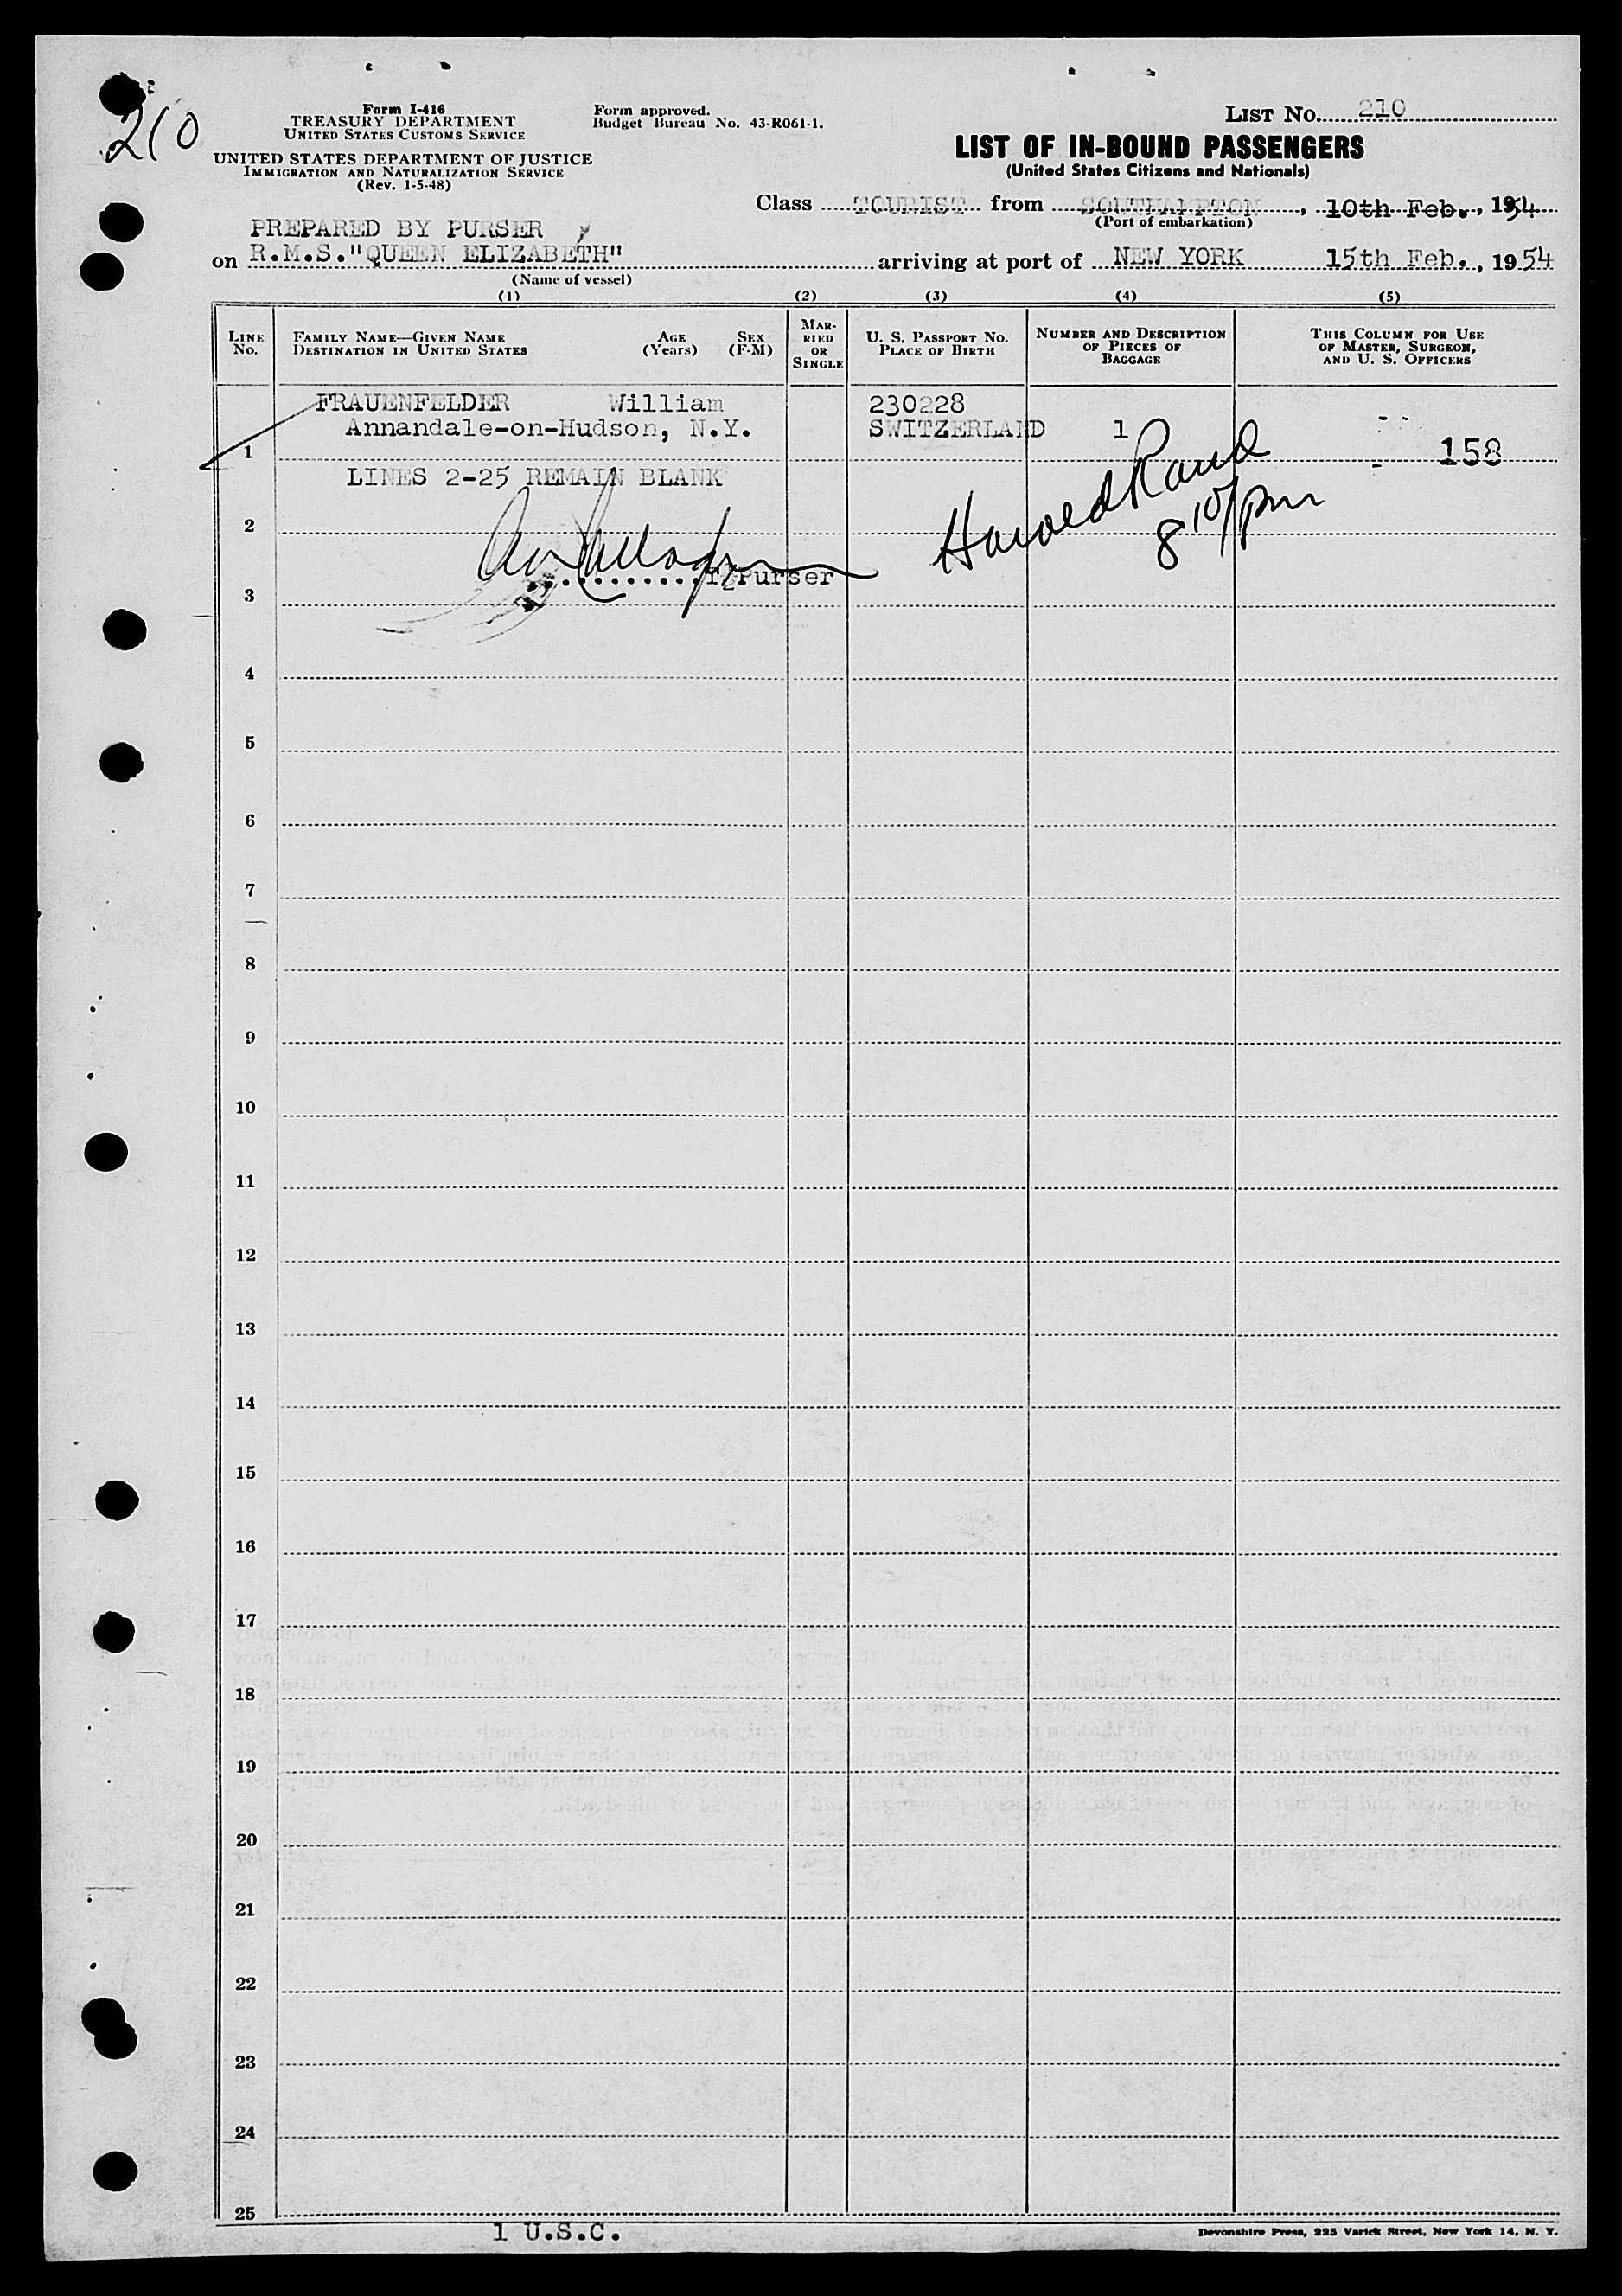 210
Form I-416
TREASURY DEPARTMENT
UNITED STATES CUSTOMS SERVICE
UNITED STATES DEPARTMENT OF JUSTICE
IMMIGRATION AND NATURALIZATION SERVICE
(Rev. 1-5-48)
Form approved.
Budget Bureau No. 43-R061-1.
LIST No. 210
LIST OF IN-BOUND PASSENGERS
(United States Citizens and Nationals)
Class TOURIST from SOUTHAMPTON, 10th Feb., 1954
(Port of embarkation)
PREPARED BY PURSER
on R.M.S."QUEEN ELIZABETH" arriving at port of NEW YORK 15th Feb., 1954
(Name of vessel)
(1) (2) (3) (4) (5)
LINE No. FAMILY NAME—GIVEN NAME DESTINATION IN UNITED STATES AGE (Years) SEX (F-M) MARRIED OR SINGLE U. S. PASSPORT No. PLACE OF BIRTH NUMBER AND DESCRIPTION OF PIECES OF BAGGAGE THIS COLUMN FOR USE OF MASTER, SURGEON, AND U. S. OFFICERS
FRAUENFELDER William 230228
Annandale-on-Hudson, N.Y. SWITZERLAND 1
1 158
LINES 2-25 REMAIN BLANK
Harold Rand
8 10/pm
2
Purser
3
4
5
6
7
8
9
10
11
12
13
14
15
16
17
18
19
20
21
22
23
24
25
1 U.S.C.
Devonshire Press, 225 Varick Street, New York 14, N. Y.